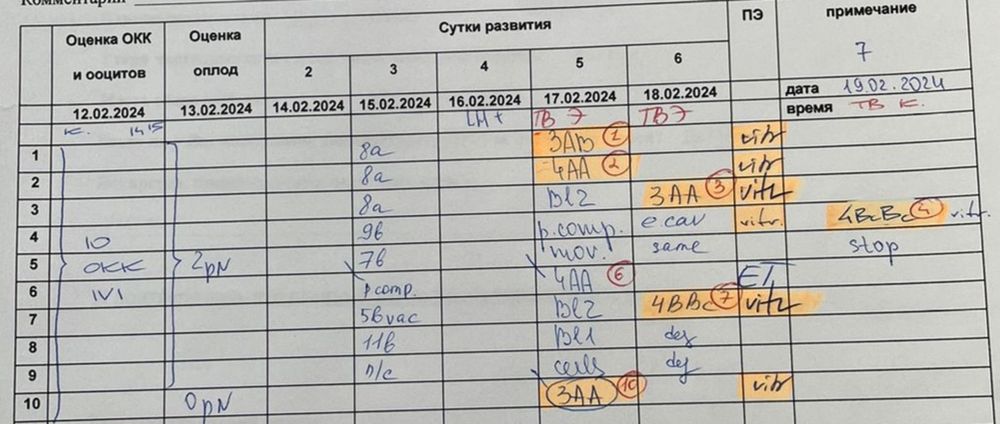 Комментарий
Оценка ОКК и ооцитов Оценка оплод Сутки развития ПЭ примечание
2 3 4 5 6 7
12.02.2024 13.02.2024 14.02.2024 15.02.2024 16.02.2024 17.02.2024 18.02.2024 дата 19.02.2024
К. 1415 LH+ ТВ Э ТВЭ время ТВ К.
1 8a 3AB 1 vitr
2 8a 4AA 2 vitr
3 8a Bl2 3AA 3 vitr
4 10 9b p.comp. e.cav vitr. 4BcBc 4 vitr.
5 ОКК 2pN 7b mov. same stop
6 IVI p comp. 4AA 6 ET
7 5b vac Bl2 4BBc 7 vitr
8 11b Bl1 deg
9 n/c cells deg
10 0pN 3AA 10 vitr